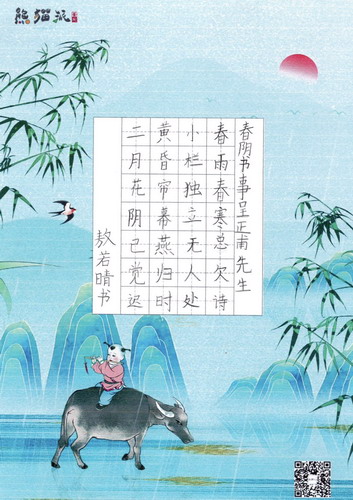 熊猫派
春阴书事呈正甫先生
春雨春寒总欠诗
小栏独立无人处
黄昏帘幕燕归时
二月花阴已觉迟
敖若晴书